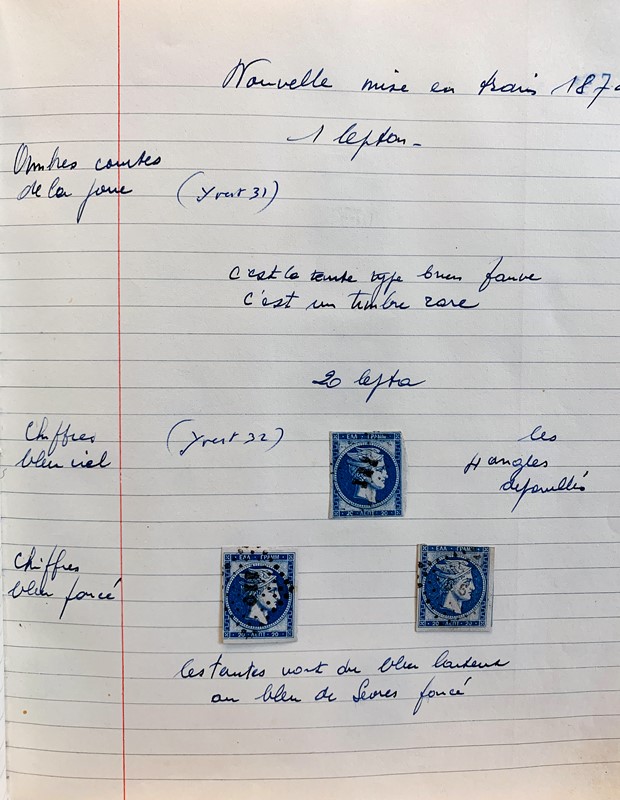 Nouvelle mise en train 187
1 lepton
Ombres courtes
de la joue (Yvert 31)
c'est la seule type brun fauve
c'est un timbre rare
20 lepta
Chiffres
bleu ciel (Yvert 32)
les
4 angles
ΕΛΛ ΓΡΑΜΜ
20 ΛΕΠΤ 20
Chiffres
bleu foncé
ΕΛΛ ΓΡΑΜΜ
20 ΛΕΠΤ 20
ΕΛΛ ΓΡΑΜΜ
20 ΛΕΠΤ 20
les teintes vont du bleu laiteux
au bleu de Sevres foncé